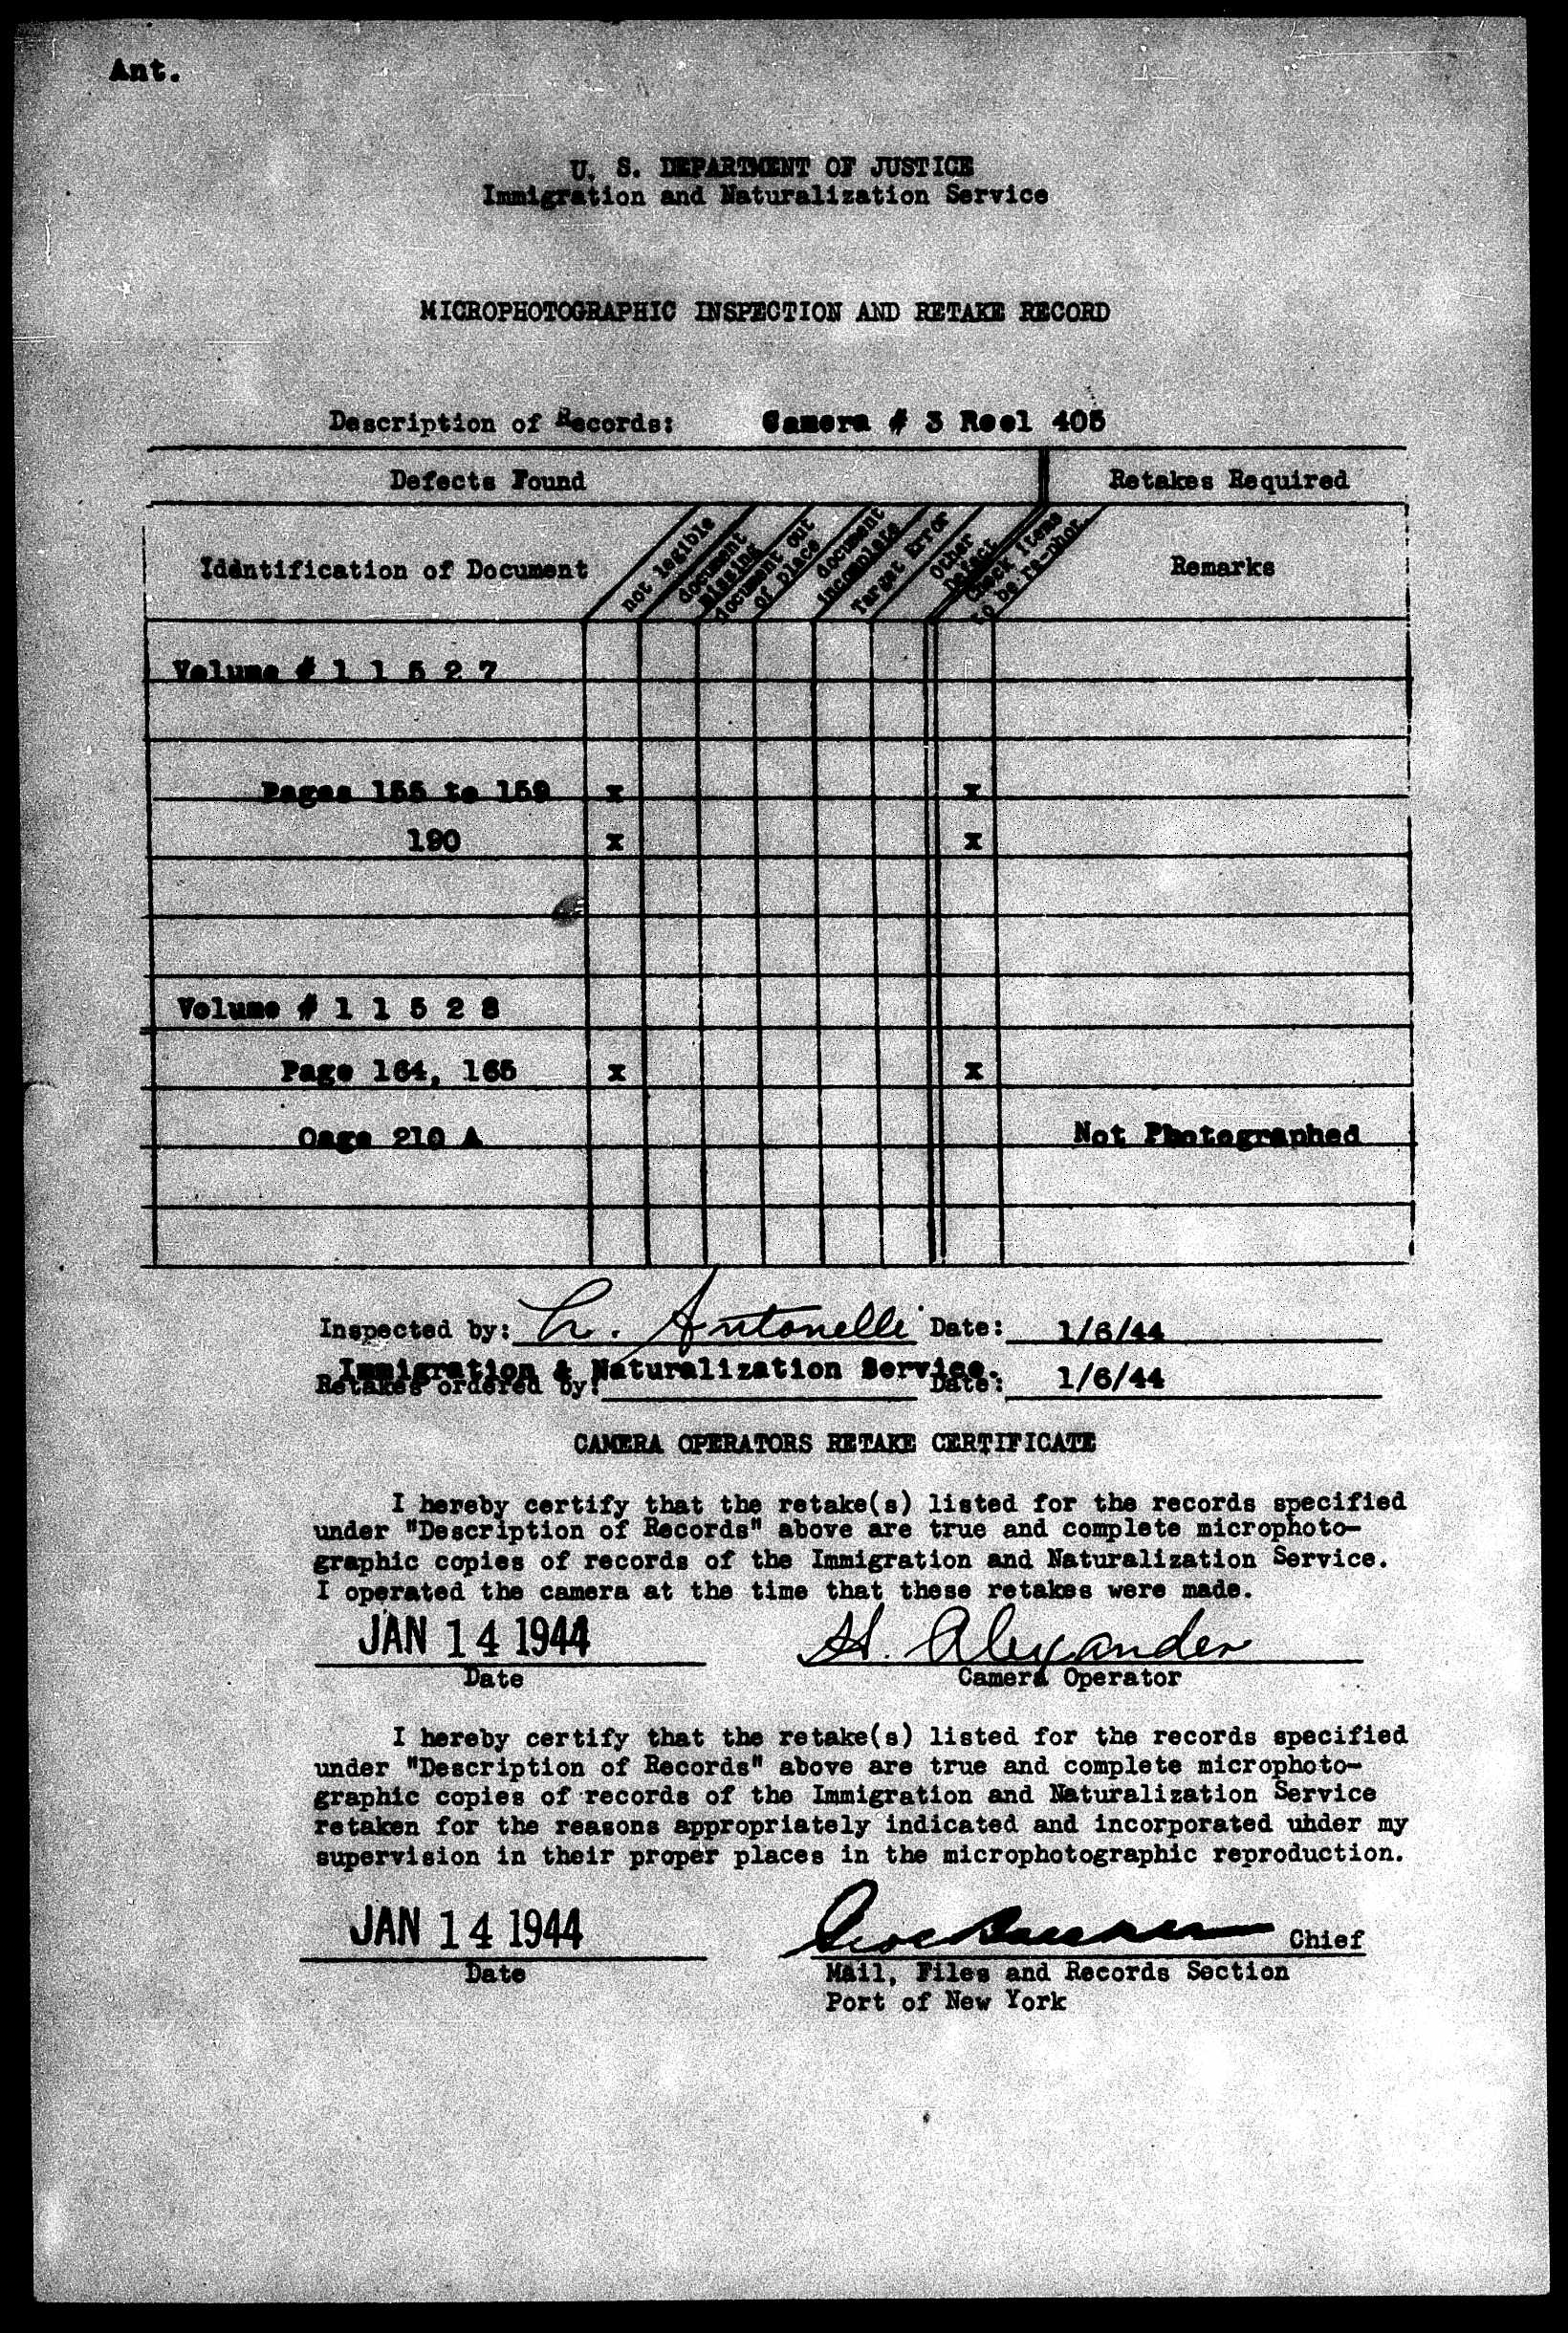 Ant.
U. S. DEPARTMENT OF JUSTICE
Immigration and Naturalization Service
MICROPHOTOGRAPHIC INSPECTION AND RETAKE RECORD
Description of Records: Camera # 3 Reel 405
Defects Found Retakes Required
Identification of Document
not legible
document
missing
document out
of place
document
incomplete
Target Error
Other
Defect
Check items
to be re-phot.
Remarks
Volume # 1 1 5 2 7
Pages 155 to 159 x x
190 x x
Volume # 1 1 5 2 8
Page 164, 165 x x
Oage 210 A Not Photographed
Inspected by: L. Antonelli Date: 1/6/44
Immigration & Naturalization Service.
Retakes ordered by: Date: 1/6/44
CAMERA OPERATORS RETAKE CERTIFICATE
I hereby certify that the retake(s) listed for the records specified
under "Description of Records" above are true and complete microphoto-
graphic copies of records of the Immigration and Naturalization Service.
I operated the camera at the time that these retakes were made.
JAN 14 1944 H. Alexander
Date Camera Operator
I hereby certify that the retake(s) listed for the records specified
under "Description of Records" above are true and complete microphoto-
graphic copies of records of the Immigration and Naturalization Service
retaken for the reasons appropriately indicated and incorporated under my
supervision in their proper places in the microphotographic reproduction.
JAN 14 1944 Chief
Date Mail, Files and Records Section
Port of New York